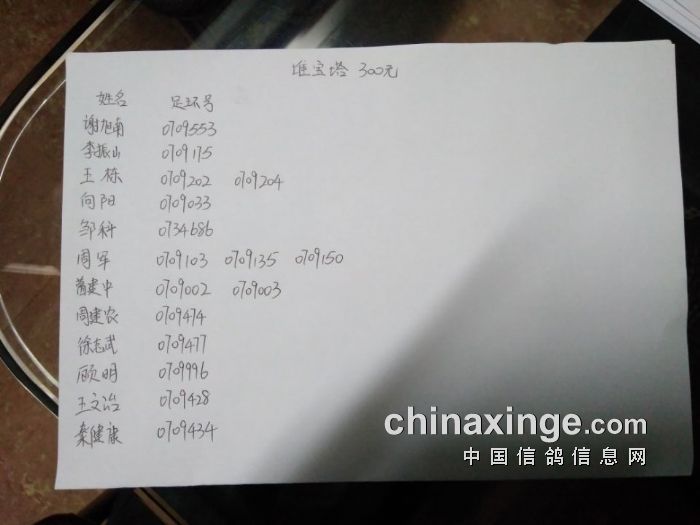 堆宝塔 300元
姓名 足环号
谢旭南 0709553
李振山 0709175
王栋 0709202 0709204
向阳 0709033
邹科 0734686
周军 0709103 0709135 0709150
建中 0709002 0709003
周建农 0709474
徐志武 0709477
顾明 0709996
王文治 0709428
秦健康 0709434
chinaxinge.com
中国信鸽信息网